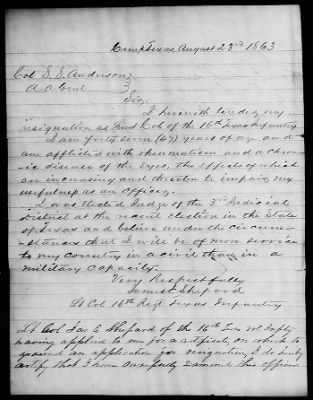 Camp Texas August 23rd 1863
Col S. S. Anderson
A. A. Genl
Sir,
I herewith tender my
resignation as Lieut Col of the 16th Texas Infantry
I am forty seven (47) years of age and
am afflicted with rheumatism and a chron-
ic disease of the eyes, the effects of which
are increasing and threaten to impair my
usefulness as an officer.
I was elected Judge of the 3rd Judicial
District at the recent election in the State
of Texas and believe under the circum-
stances that I will be of more service
to my country in a civil than in a
military capacity.
Very Respectfully
James E Shepard
Lt Col 16th Regt Texas Infantry
Lt Col Jas E Shepard of the 16th Tex vol Infty
having applied to me for a certificate on which to
ground an application for resignation, I do hereby
certify that I have carefully examined this officer